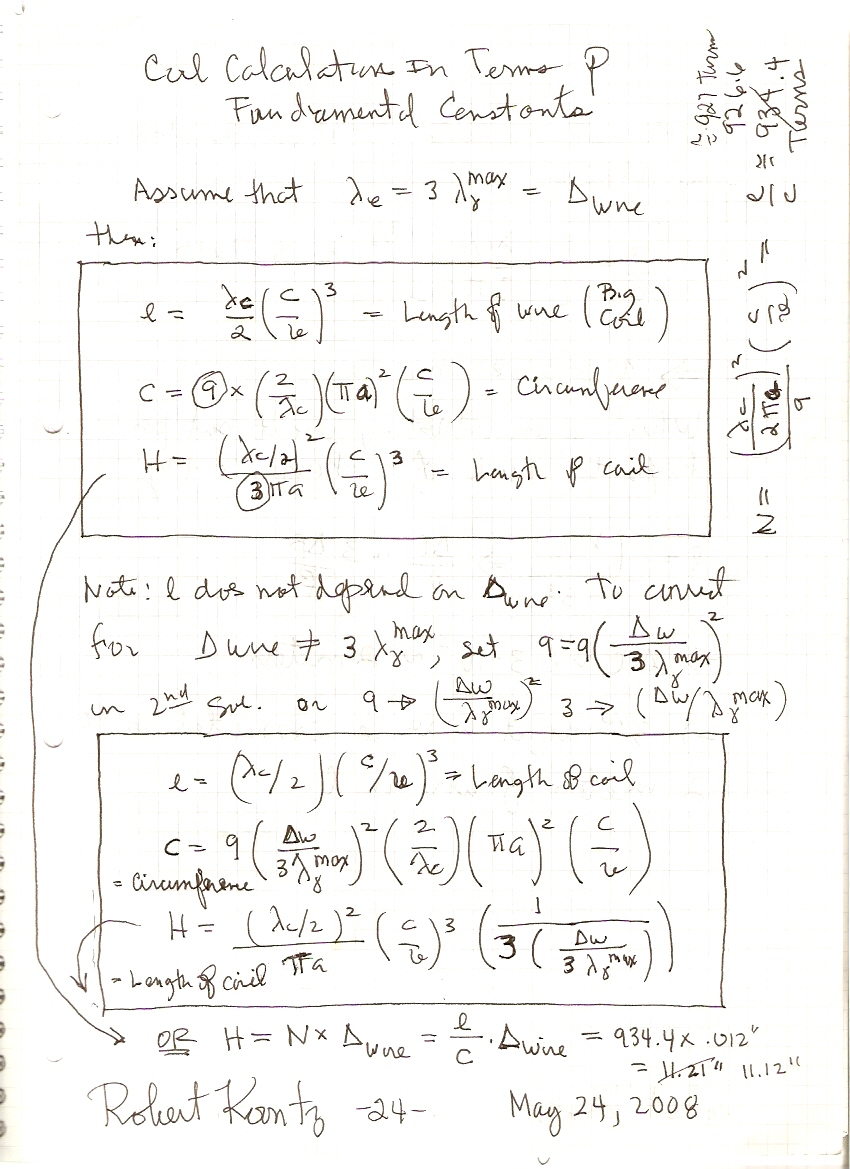 Coil Calculations In Terms of
Fundamental Constants
Assume that λe = 3 λγ^max = Δwire
then:
l = λc/2 (c/ve)^3 = Length of wire (Big Coil)
C = 9 × (2/λc)(πa)^2 (c/ve) = Circumference
H = (λc/2)^2/3πa (c/ve)^3 = Length of coil
Note: l does not depend on Δwire. To correct
for Δwire ≠ 3 λγ^max, set 9 = 9(Δw/3 λγ^max)^2
in 2nd Sol. or 9 → (Δw/λγ^max)^2 3 → (Δw/λγ^max)
l = (λc/2)(c/ve)^3 = Length of coil
C = 9 (Δw/3λγ^max)^2 (2/λc)(πa)^2 (c/ve)
= Circumference
H = (λc/2)^2/πa (c/ve)^3 (1/3(Δw/3λγ^max))
= Length of coil
OR H = N × Δwire = l/C · Δwire = 934.4 × .012"
= 11.21" 11.12"
Robert Koontz -24- May 24, 2008
N = (λc/2πa)^2 (c/ve)^2/9 = l/C = 934.4 Turns
926.6
≈ 927 Turns